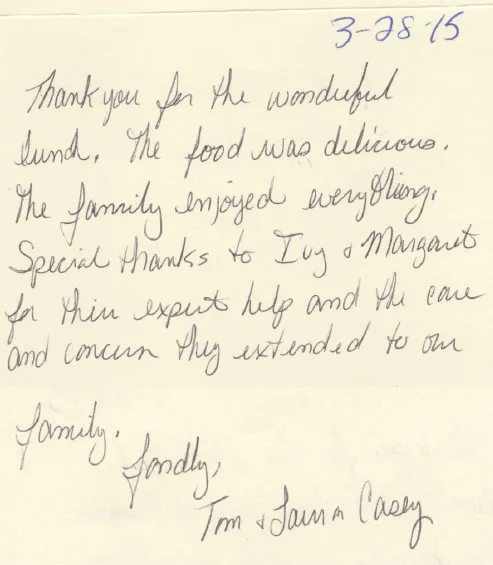 3-28-15
Thank you for the wonderful
lunch. The food was delicious.
The family enjoyed everything.
Special thanks to Ivy & Margaret
for their expert help and the care
and concern they extended to our
family.
Fondly,
Tom & Casey